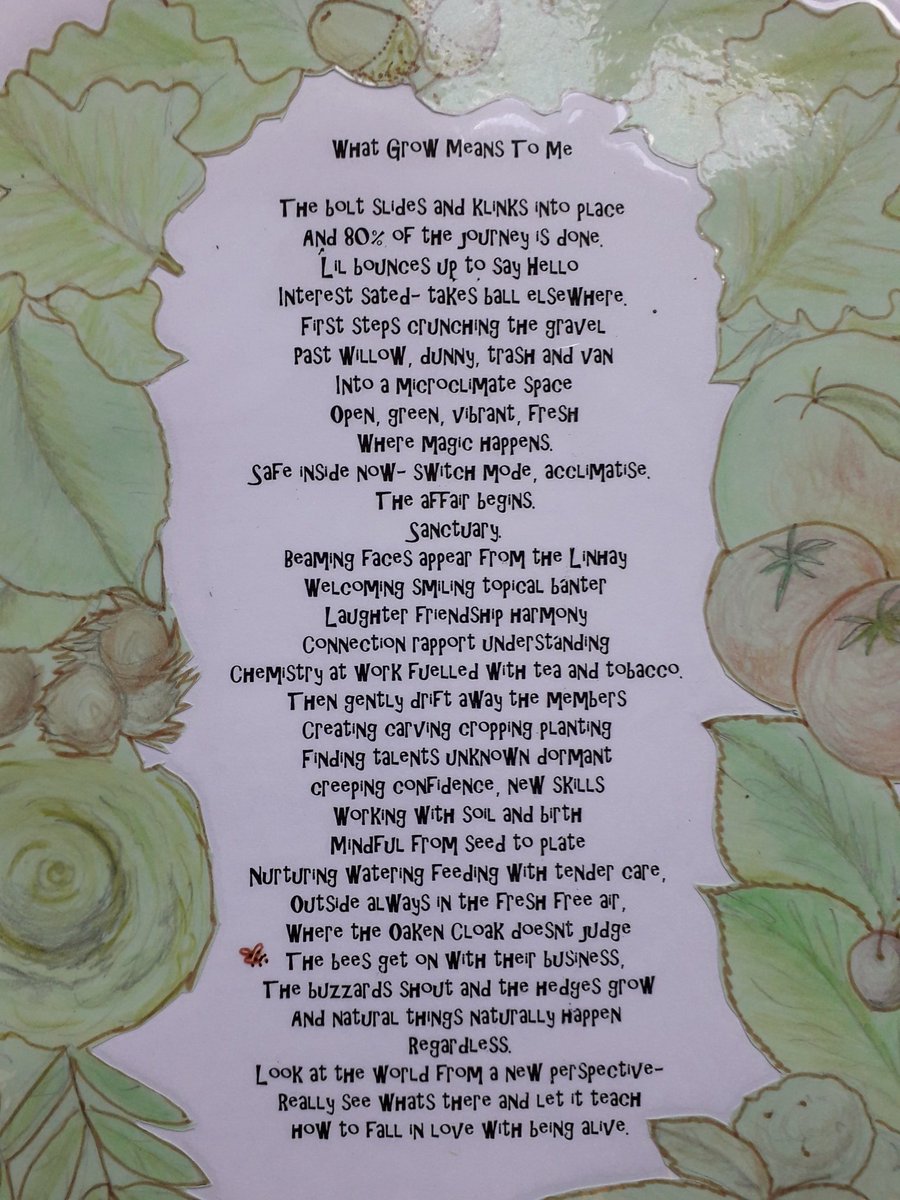 What Grow Means To Me
The bolt slides and klinks into place
And 80% of the journey is done.
Lil bounces up to say hello
Interest sated- takes ball elsewhere.
First steps crunching the gravel
Past willow, dunny, trash and van
Into a microclimate space
Open, green, vibrant, fresh
Where magic happens.
Safe inside now- switch mode, acclimatise.
The affair begins.
Sanctuary.
Beaming faces appear from the Linhay
Welcoming smiling topical banter
Laughter friendship harmony
Connection rapport understanding
Chemistry at work fuelled with tea and tobacco.
Then gently drift away the members
Creating carving cropping planting
Finding talents unknown dormant
creeping confidence, new skills
Working with soil and birth
Mindful from seed to plate
Nurturing watering feeding with tender care,
Outside always in the fresh free air,
Where the Oaken Cloak doesnt judge
The bees get on with their business,
The buzzards shout and the hedges grow
And natural things naturally happen
Regardless.
Look at the world from a new perspective-
Really see whats there and let it teach
How to fall in love with being alive.